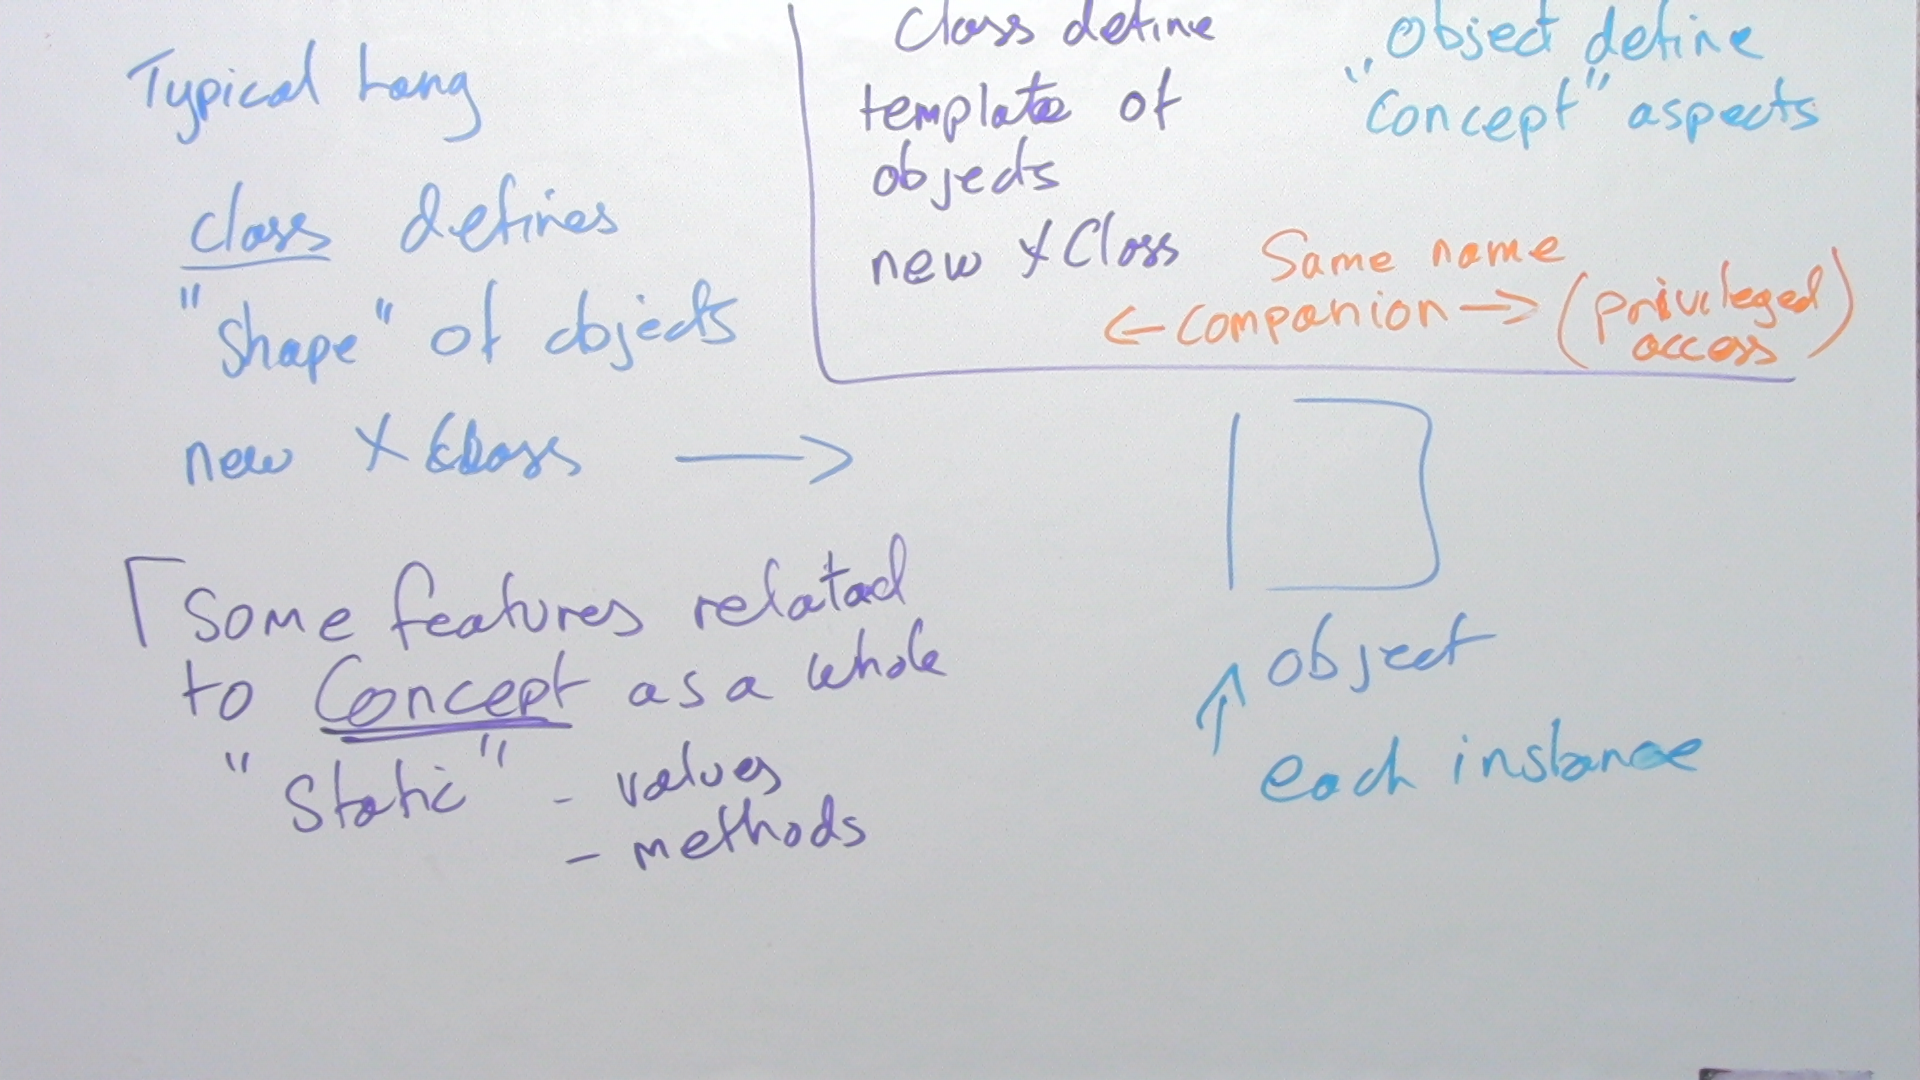 Typical Lang
class defines
"Shape" of objects
new X Class →
Some features related
to Concept as a whole
"Static" - values
- methods
Class define
template of
objects
new XClass
Object define
"Concept" aspects
Same name
← Companion → (privileged
access)
object
↑ each instance